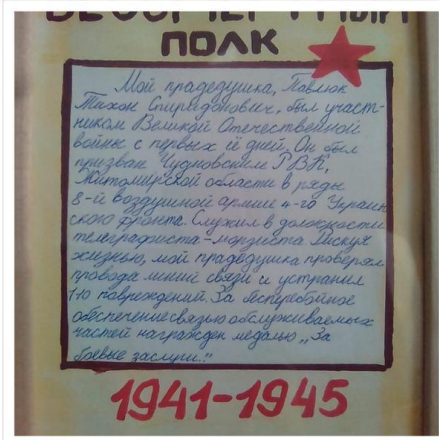 БЕССМЕРТНЫЙ
ПОЛК
Мой прадедушка, Павлюк
Тихон Спиридонович, был участ-
ником Великой Отечественной
войны с первых её дней. Он был
призван Чудновским РВК,
Житомирской области в ряды
8-й воздушной армии 4-го Украин
ского фронта. Служил в должности
телеграфиста-морзиста. Рискуя
жизнью, мой прадедушка проверял
провода линий связи и устранил
110 повреждений. За бесперебойное
обеспечение связью обслуживаемых
частей награжден медалью „За
боевые заслуги."
1941-1945